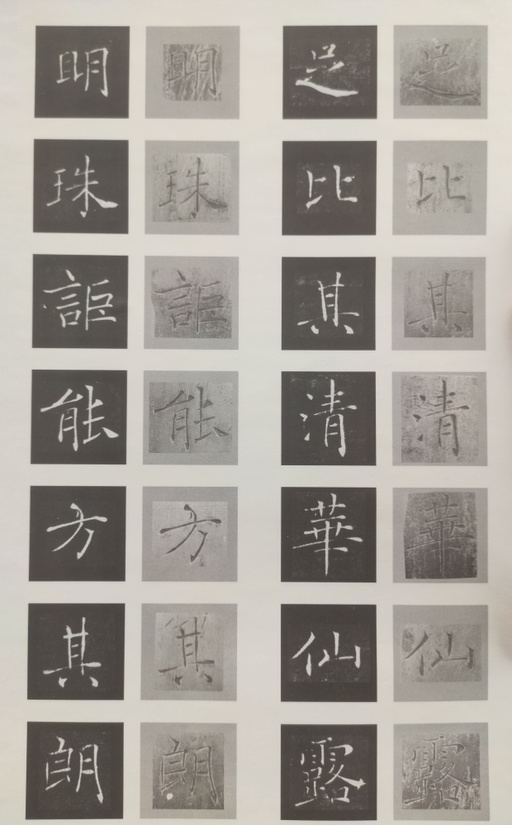 足比其清華仙露
足比其清華仙露
明珠詎能方其朗
明珠詎能方其朗